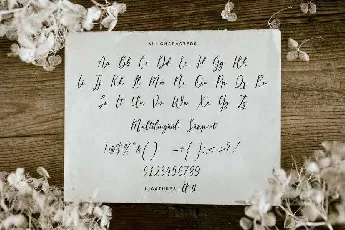 ALL CHARACTERS
Aa Bb Cc Dd Ee Ff Gg Hh
Ii Jj Kk Ll Mm Nn Oo Pp Qq Rr
Ss Tt Uu Vv Ww Xx Yy Zz
Multilingual Support
0123456789
LIGATURES